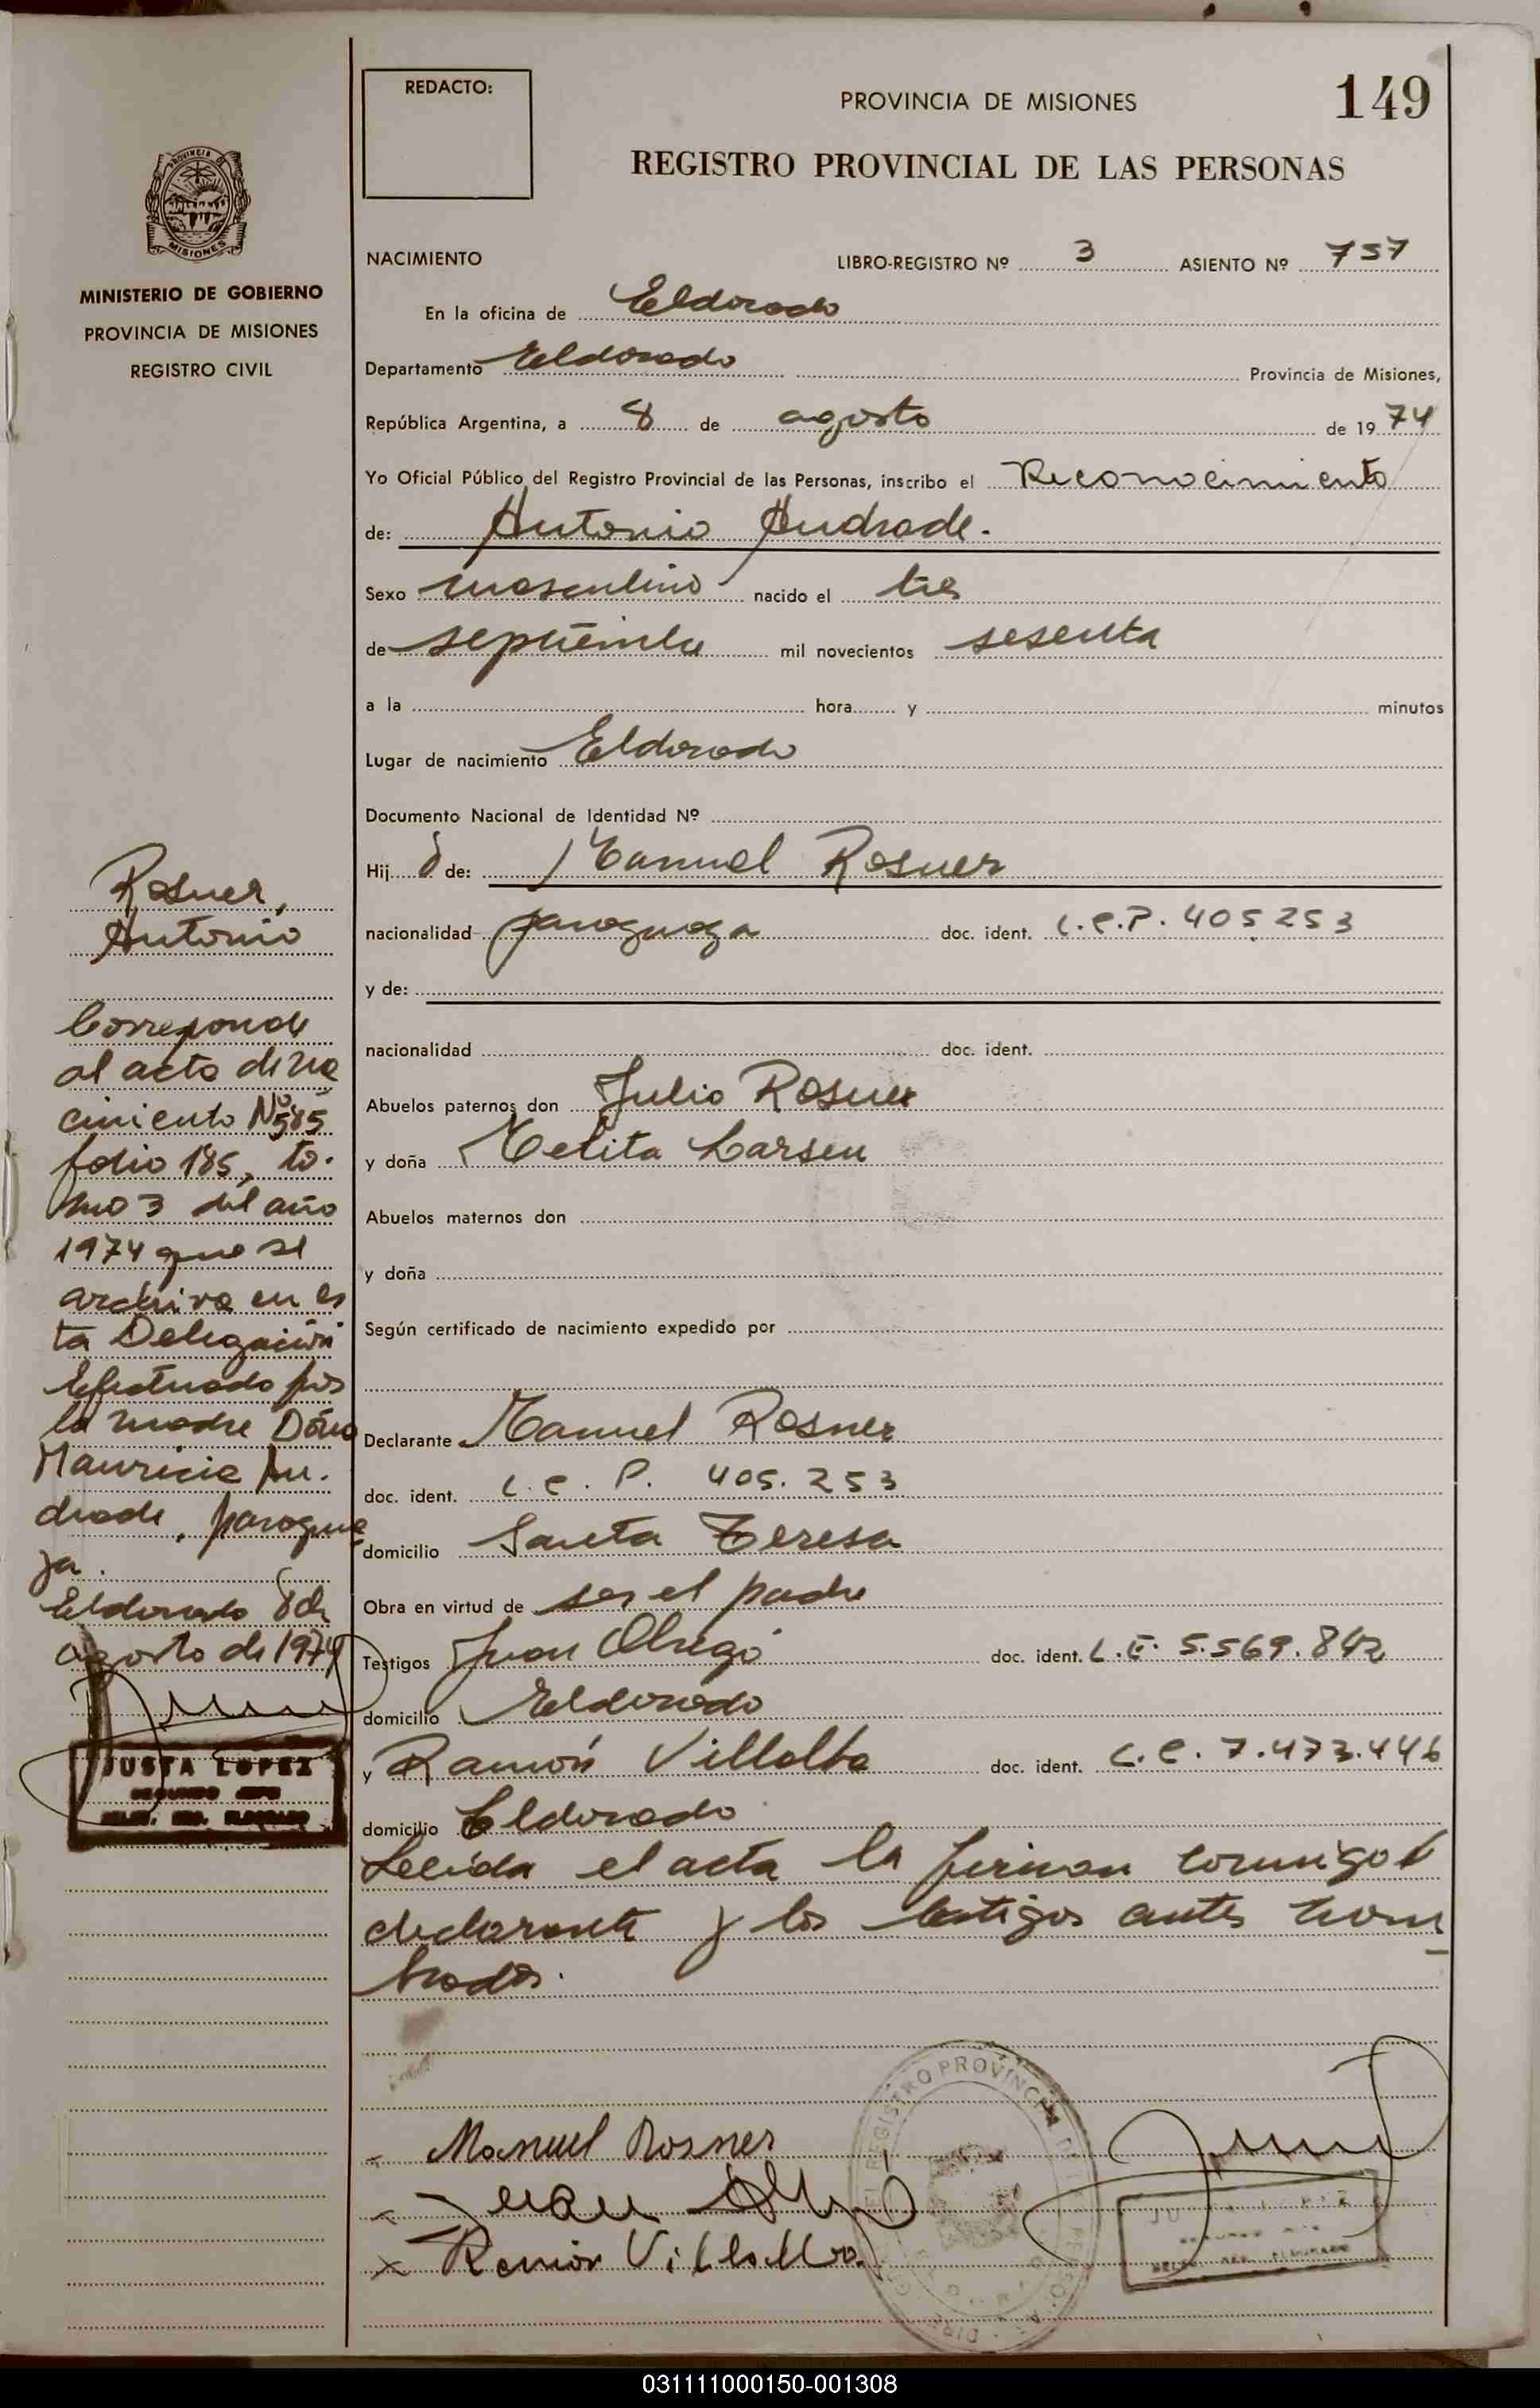 REDACTO:
PROVINCIA DE MISIONES
149
REGISTRO PROVINCIAL DE LAS PERSONAS
PROVINCIA DE
MISIONES
MINISTERIO DE GOBIERNO
PROVINCIA DE MISIONES
REGISTRO CIVIL
NACIMIENTO LIBRO-REGISTRO Nº 3 ASIENTO Nº 757
En la oficina de Eldorado
Departamento Eldorado Provincia de Misiones,
República Argentina, a 8 de agosto de 1974
Yo Oficial Público del Registro Provincial de las Personas, inscribo el Reconocimiento
de: Antonio Andrade.
Sexo masculino nacido el tres
de septiembre mil novecientos sesenta
a la hora y minutos
Lugar de nacimiento Eldorado
Documento Nacional de Identidad Nº
Hij o de: Manuel Rosner
nacionalidad paraguaya doc. ident. C.C.P. 405253
y de:
nacionalidad doc. ident.
Abuelos paternos don Julio Rosner
y doña Melita Larsen
Abuelos maternos don
y doña
Según certificado de nacimiento expedido por
Declarante Manuel Rosner
doc. ident. C.C.P. 405.253
domicilio Santa Teresa
Obra en virtud de ser el padre
Testigos Juan doc. ident. L.E. 5.569.842
domicilio Eldorado
y Ramón Villalba doc. ident. C.C. 7.473.446
domicilio Eldorado
Leída el acta la firman conmigo el
declarante y los testigos antes nom
brados.
Rosner,
Antonio
Corresponde
al acta de na
cimiento Nº 585
folio 185, to-
mo 3 del año
1974 que se
archiva en es
ta Delegación
Efectuado por
la madre Doña
Mauricia An-
drade, paragua
ya.
Eldorado 8 de
agosto de 1974
JUSTA LOPEZ
SEGUNDO JEFE
DELEG. REG. ELDORADO
Manuel Rosner
Juan
Ramón Villalba
REGISTRO PROVINCIAL DE
031111000150-001308